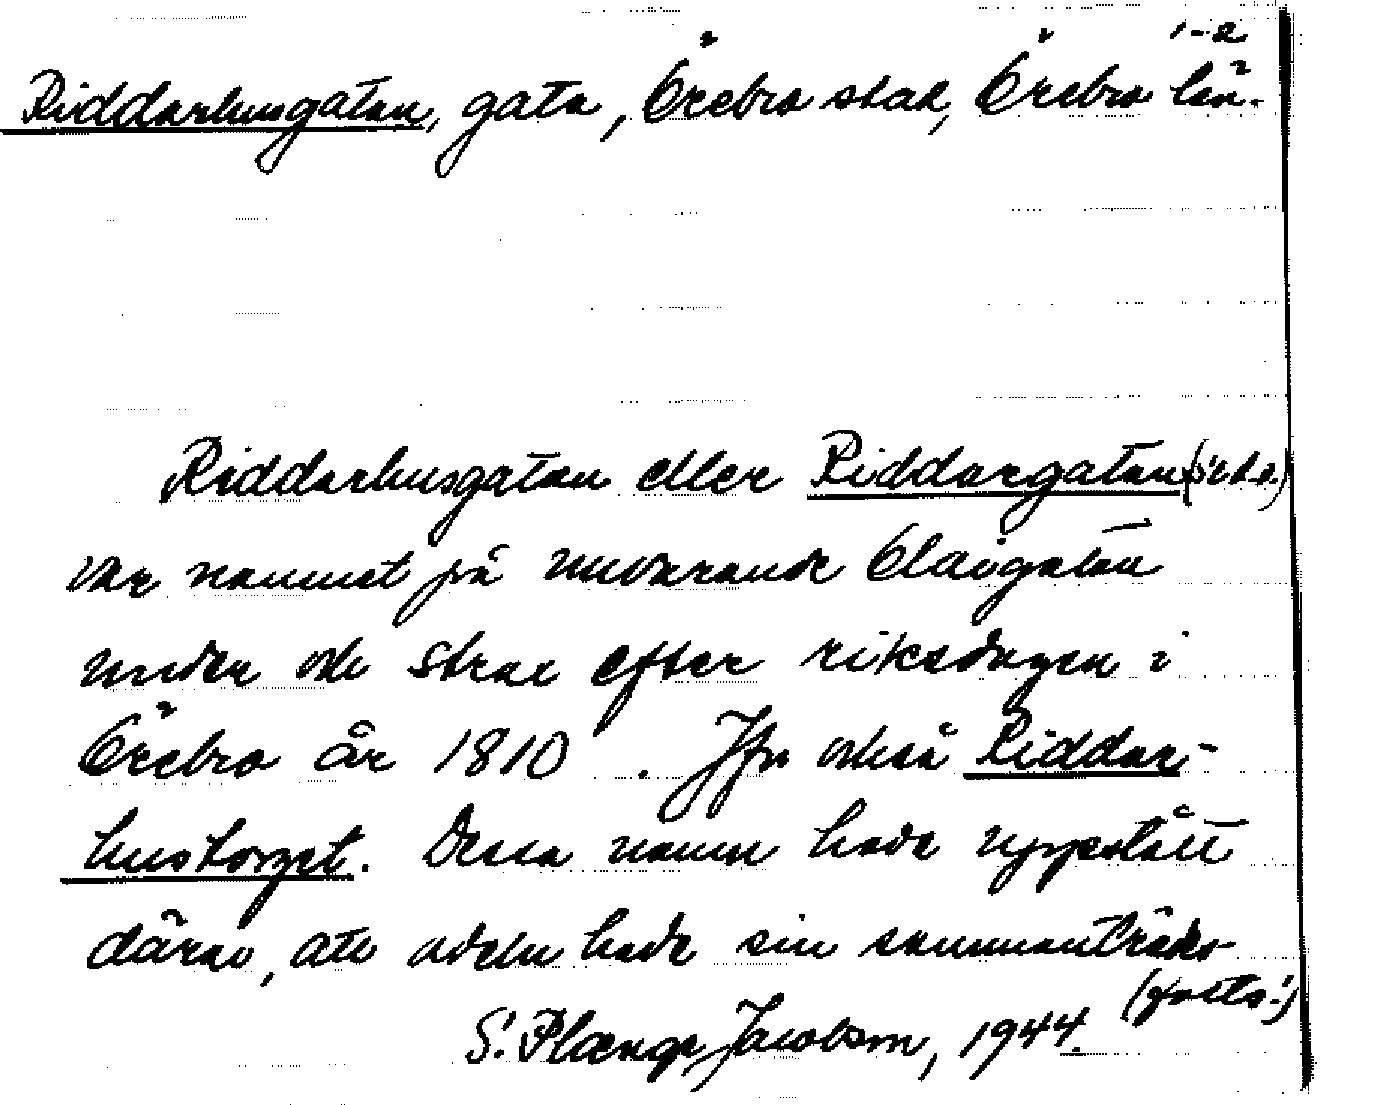 1-2
Riddarhusgatan, gata, Örebro stad, Örebro län.
Riddarhusgatan eller Riddargatan
var namnet på nuvarande Olaigatan
under och strax efter riksdagen i
Örebro år 1810. Jfr också Riddar-
hustorget. Dessa namn hade uppstått
därav, att adeln hade sin sammanträds-
(forts.)
S. Plænge Jacobson, 1944.